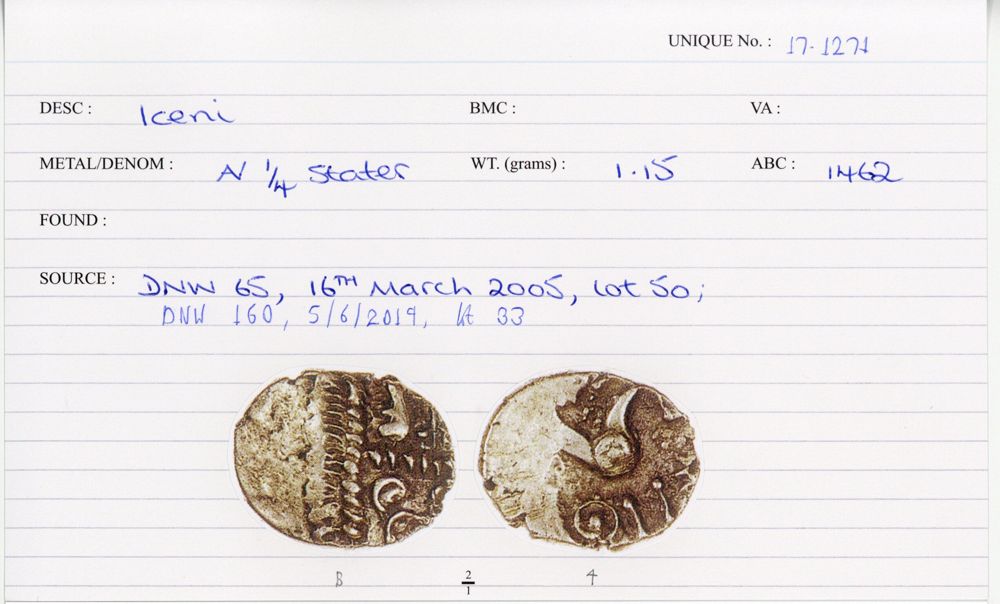 UNIQUE No. : 17.1271
DESC : Iceni BMC : VA :
METAL/DENOM : N 1/4 Stater WT. (grams) : 1.15 ABC : 1462
FOUND :
SOURCE : DNW 65, 16TH March 2005, Lot 50;
DNW 160, 5/6/2019, lot 33
B 2/1 4